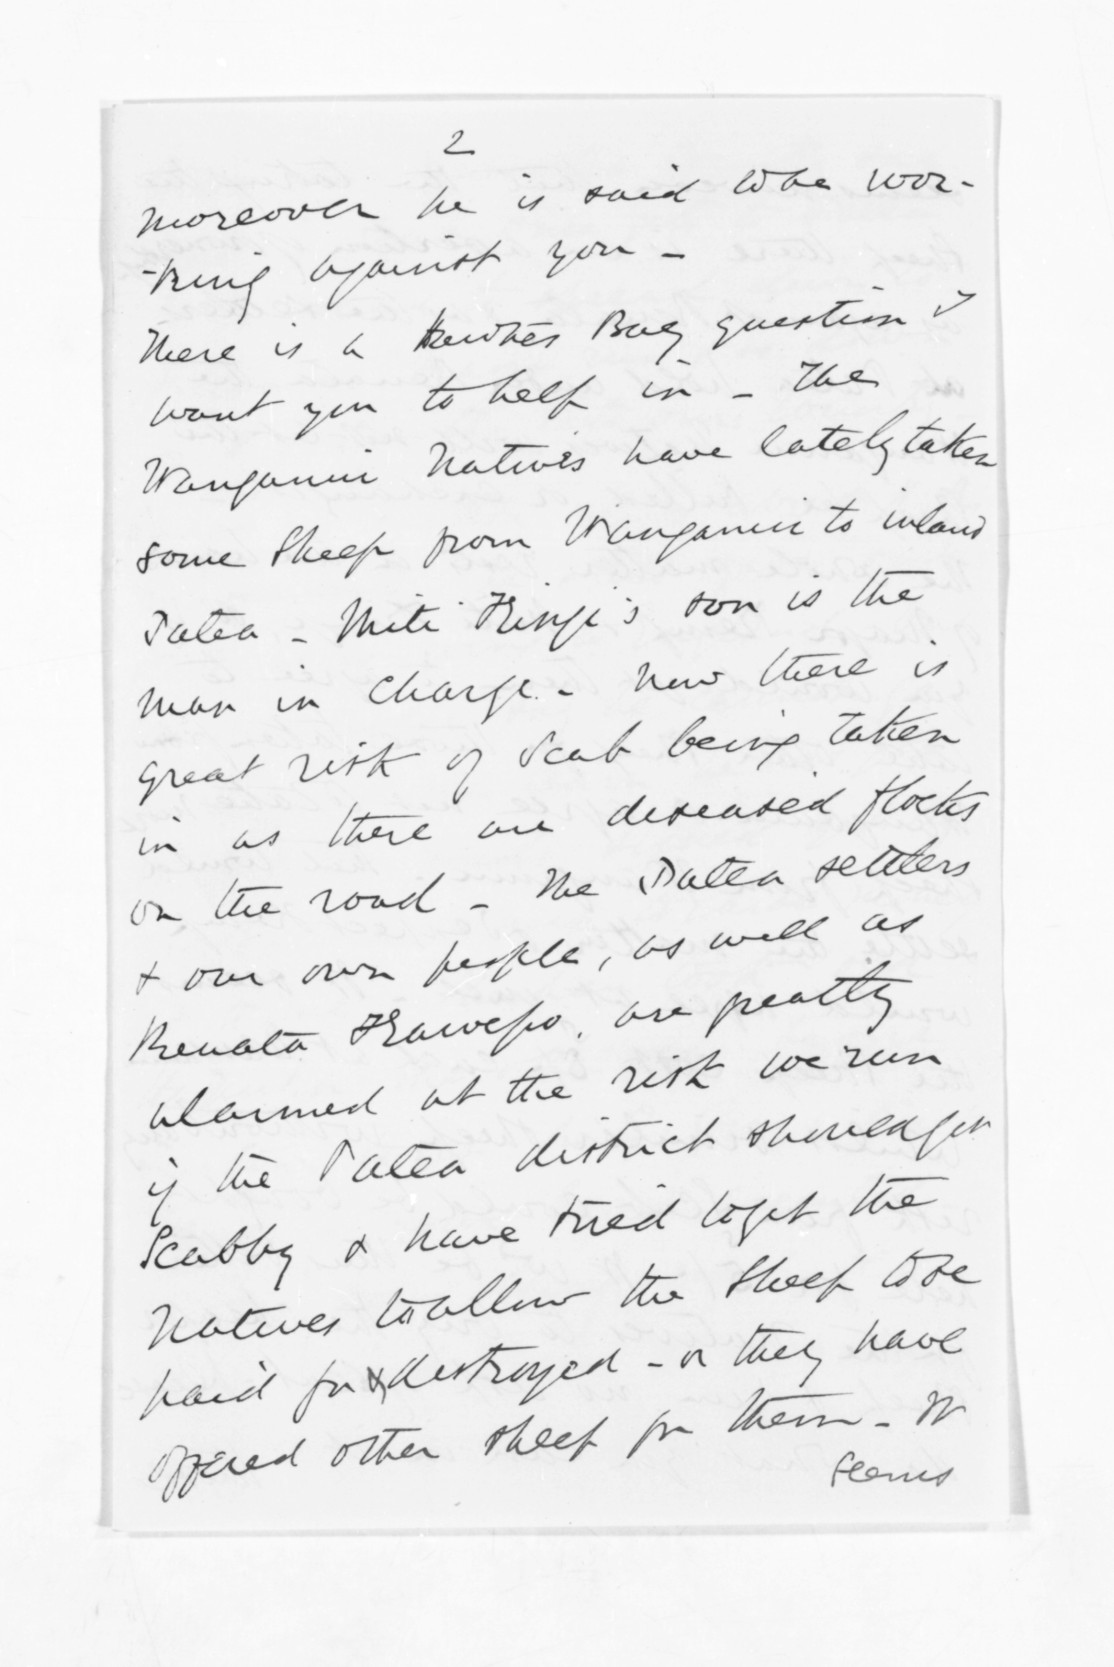 2
moreover he is said to be wor-
-king against you -
There is a Hawkes Bay question I
want you to help in - The
Wanganui Natives have lately taken
some sheep from Wanganui to inland
Patea - Mete Kingi's son is the
man in charge - now there is
great risk of Scab being taken
in as there are diseased flocks
on the road - The Patea settlers
& our own people, as well as
Renata Kawepo, are greatly
alarmed at the risk we run
if the Patea district should get
Scabby & have tried to get the
Natives to allow the sheep to be
paid for & destroyed - or they have
offered other sheep for them - It
seems